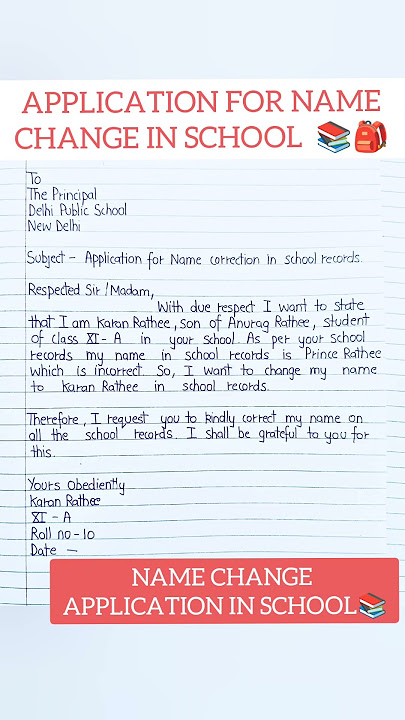 APPLICATION FOR NAME
CHANGE IN SCHOOL 📚🎒
To
The Principal
Delhi Public School
New Delhi
Subject - Application for Name correction in school records.
Respected Sir/Madam,
With due respect I want to state
that I am Karan Rathee, Son of Anurag Rathee, student
of class XI-A in your school. As per your school
records my name in school records is Prince Rathee
which is incorrect. So, I want to change my name
to Karan Rathee in school records.
Therefore, I request you to kindly correct my name on
all the school records. I shall be grateful to you for
this.
Yours Obediently
Karan Rathee
XI - A
Roll no - 10
Date -
NAME CHANGE
APPLICATION IN SCHOOL📚